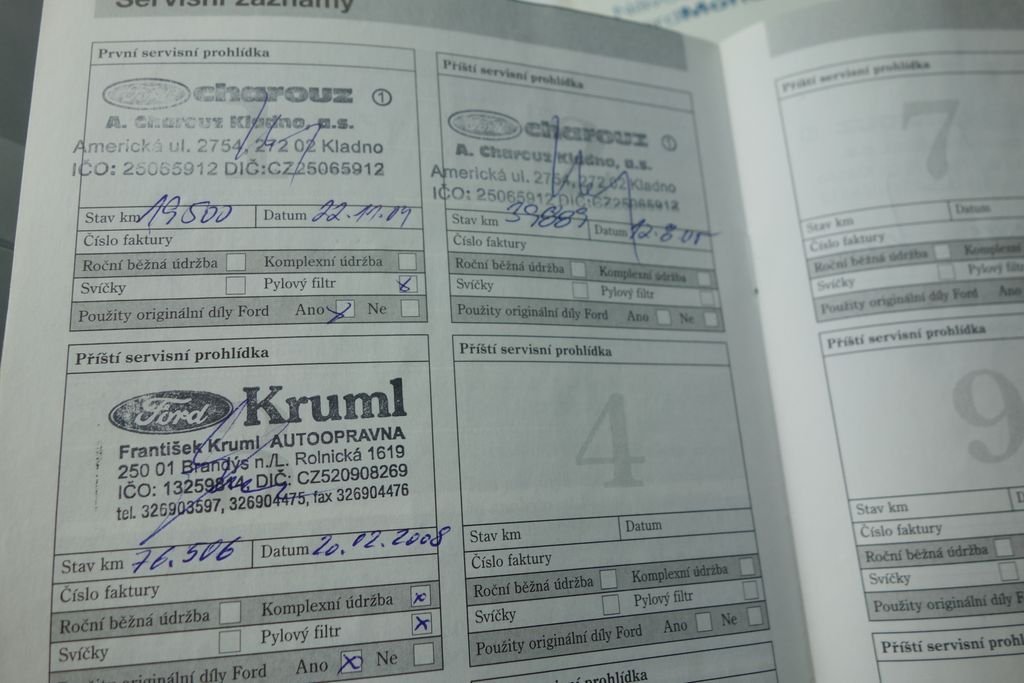 Servisní záznamy
První servisní prohlídka
Ford charouz 1
A. Charouz Kladno, a.s.
Americká ul. 2754, 272 02 Kladno
IČO: 25065912 DIČ:CZ25065912
Stav km 19500 Datum 22.11.04
Číslo faktury
Roční běžná údržba Komplexní údržba
Svíčky Pylový filtr x
Použity originální díly Ford Ano x Ne
Příští servisní prohlídka
Ford charouz 1
A. Charouz Kladno, a.s.
Americká ul. 2754, 272 02 Kladno
IČO: 25065912 DIČ:CZ25065912
Stav km 39889 Datum 12.8.05
Číslo faktury
Roční běžná údržba Komplexní údržba
Svíčky Pylový filtr
Použity originální díly Ford Ano Ne
Příští servisní prohlídka
Ford Kruml
František Kruml AUTOOPRAVNA
250 01 Brandýs n./L. Rolnická 1619
IČO: 13259814, DIČ: CZ520908269
tel. 326903597, 326904475, fax 326904476
Stav km 76.506 Datum 20.02.2008
Číslo faktury
Roční běžná údržba Komplexní údržba x
Svíčky Pylový filtr x
originální díly Ford Ano x Ne
Příští servisní prohlídka
4
Stav km Datum
Číslo faktury
Roční běžná údržba Komplexní údržba
Svíčky Pylový filtr
Použity originální díly Ford Ano Ne
prohlídka
Příští servisní prohlídka
7
Stav km Datum
Číslo faktury
Roční běžná údržba Komplexní
Svíčky Pylový
Použity originální díly Ford Ano
Příští servisní prohlídka
9
Stav km
Číslo faktury
Roční běžná údržba
Svíčky
Použity originální díly
Příští servisní